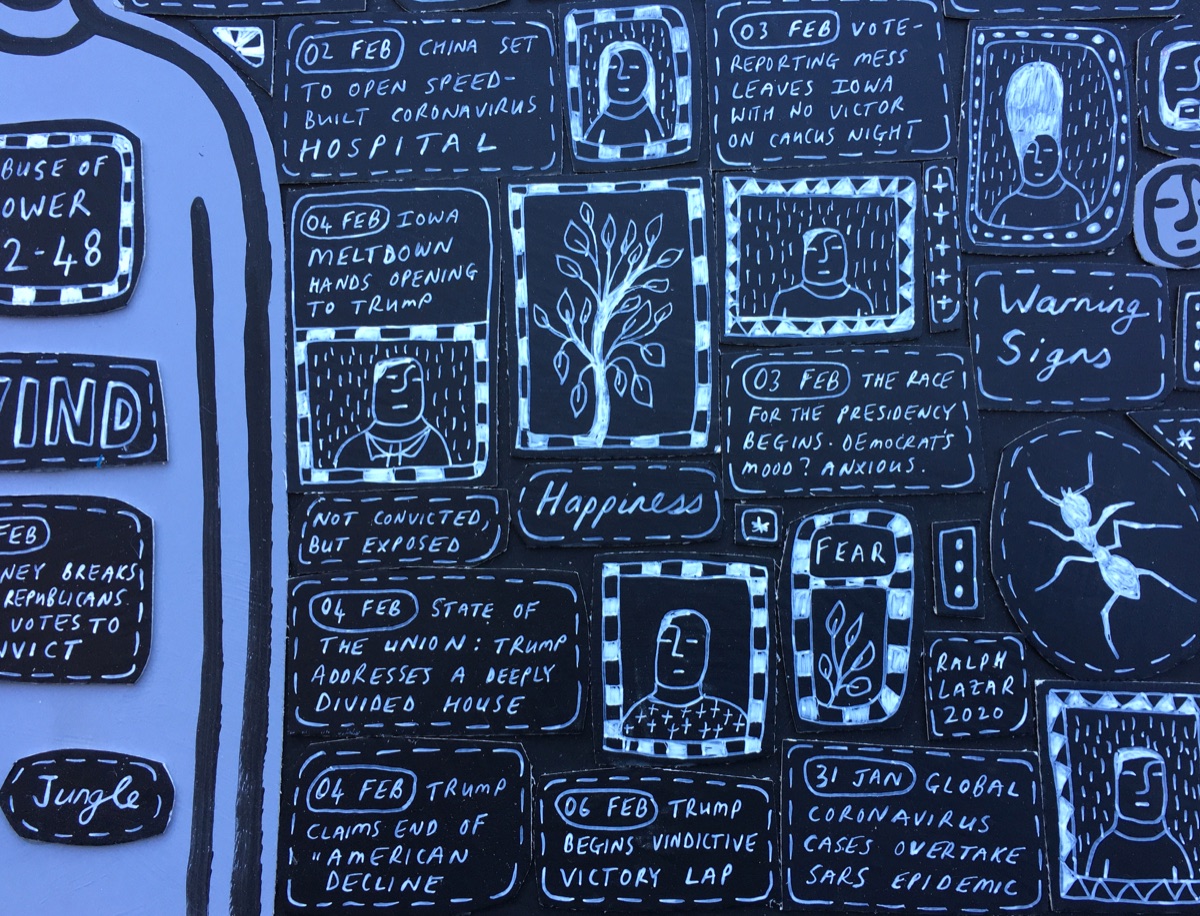 02 FEB CHINA SET
TO OPEN SPEED-
BUILT CORONAVIRUS
HOSPITAL
03 FEB VOTE-
REPORTING MESS
LEAVES IOWA
WITH NO VICTOR
ON CAUCUS NIGHT
BUSE OF
OWER
2-48
04 FEB IOWA
MELTDOWN
HANDS OPENING
TO TRUMP
Warning
Signs
03 FEB THE RACE
FOR THE PRESIDENCY
BEGINS. DEMOCRAT'S
MOOD? ANXIOUS.
IND
Happiness
NOT CONVICTED,
BUT EXPOSED
FEAR
FEB
NEY BREAKS
REPUBLICANS.
VOTES TO
VICT
04 FEB STATE OF
THE UNION: TRUMP
ADDRESSES A DEEPLY
DIVIDED HOUSE
RALPH
LAZAR
2020
Jungle
04 FEB TRUMP
CLAIMS END OF
"AMERICAN
DECLINE
06 FEB TRUMP
BEGINS VINDICTIVE
VICTORY LAP
31 JAN GLOBAL
CORONAVIRUS
CASES OVERTAKE
SARS EPIDEMIC